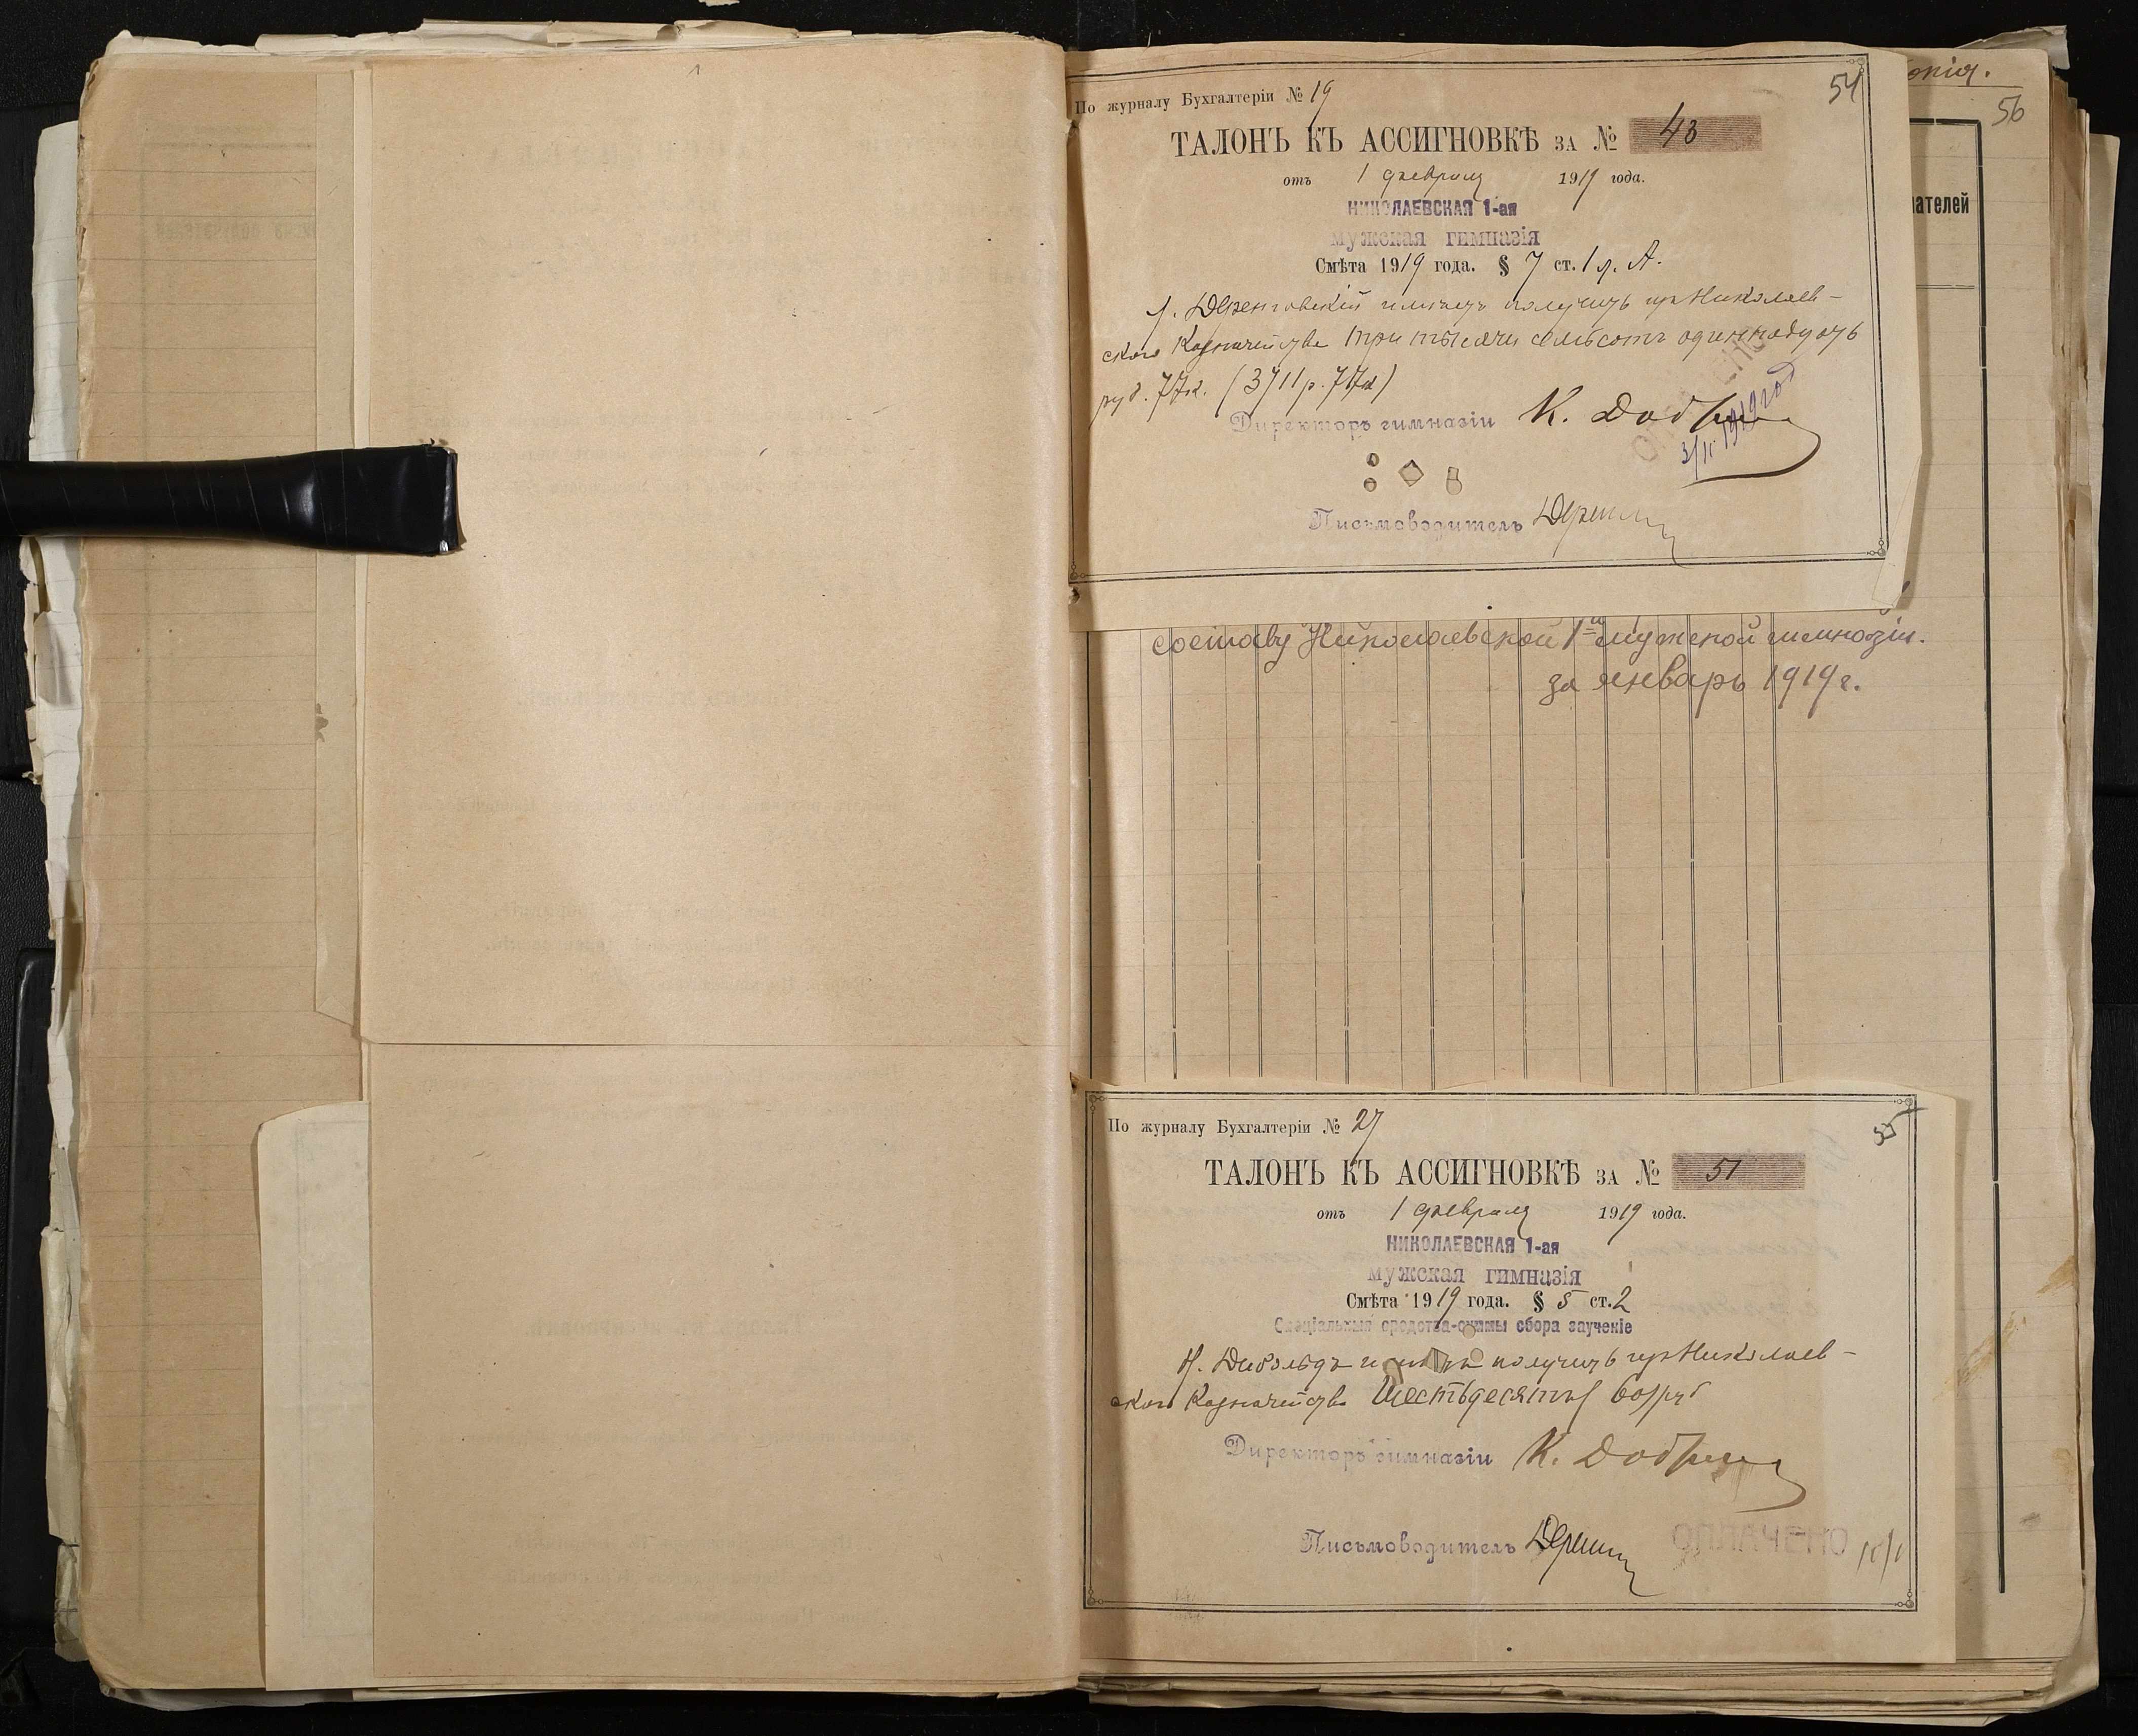 По журналу Бухгалтеріи № 19
54
ТАЛОНЪ КЪ АССИГНОВКѢ ЗА № 43
отъ 1 февраля 1919 года.
НИКОЛАЕВСКАЯ 1-ая
мужская гимназія
Смѣта 1919 года. § 7 ст. 1 л. А.
имѣетъ получить изъ Николаев-
скаго Казначейства три тысячи семьсотъ одиннадцать
руб. 77к. (3711р. 77к)
Директоръ гимназіи К.
3/II 1919 год
Письмоводитель
56
ателей
составу Николаевской 1й мужской гимназіи.
за январь 1919г.
По журналу Бухгалтеріи № 27
55
ТАЛОНЪ КЪ АССИГНОВКѢ ЗА № 51
отъ 1 февраля 1919 года.
НИКОЛАЕВСКАЯ 1-ая
мужская гимназія
Смѣта 1919 года. § 5 ст. 2
Спеціальныя средства-суммы сбора за ученіе
получить изъ Николаев-
скаго Казначейства Шестьдесятъ (60) руб
Директоръ гимназіи К.
Письмоводитель
ОПЛАЧЕНО